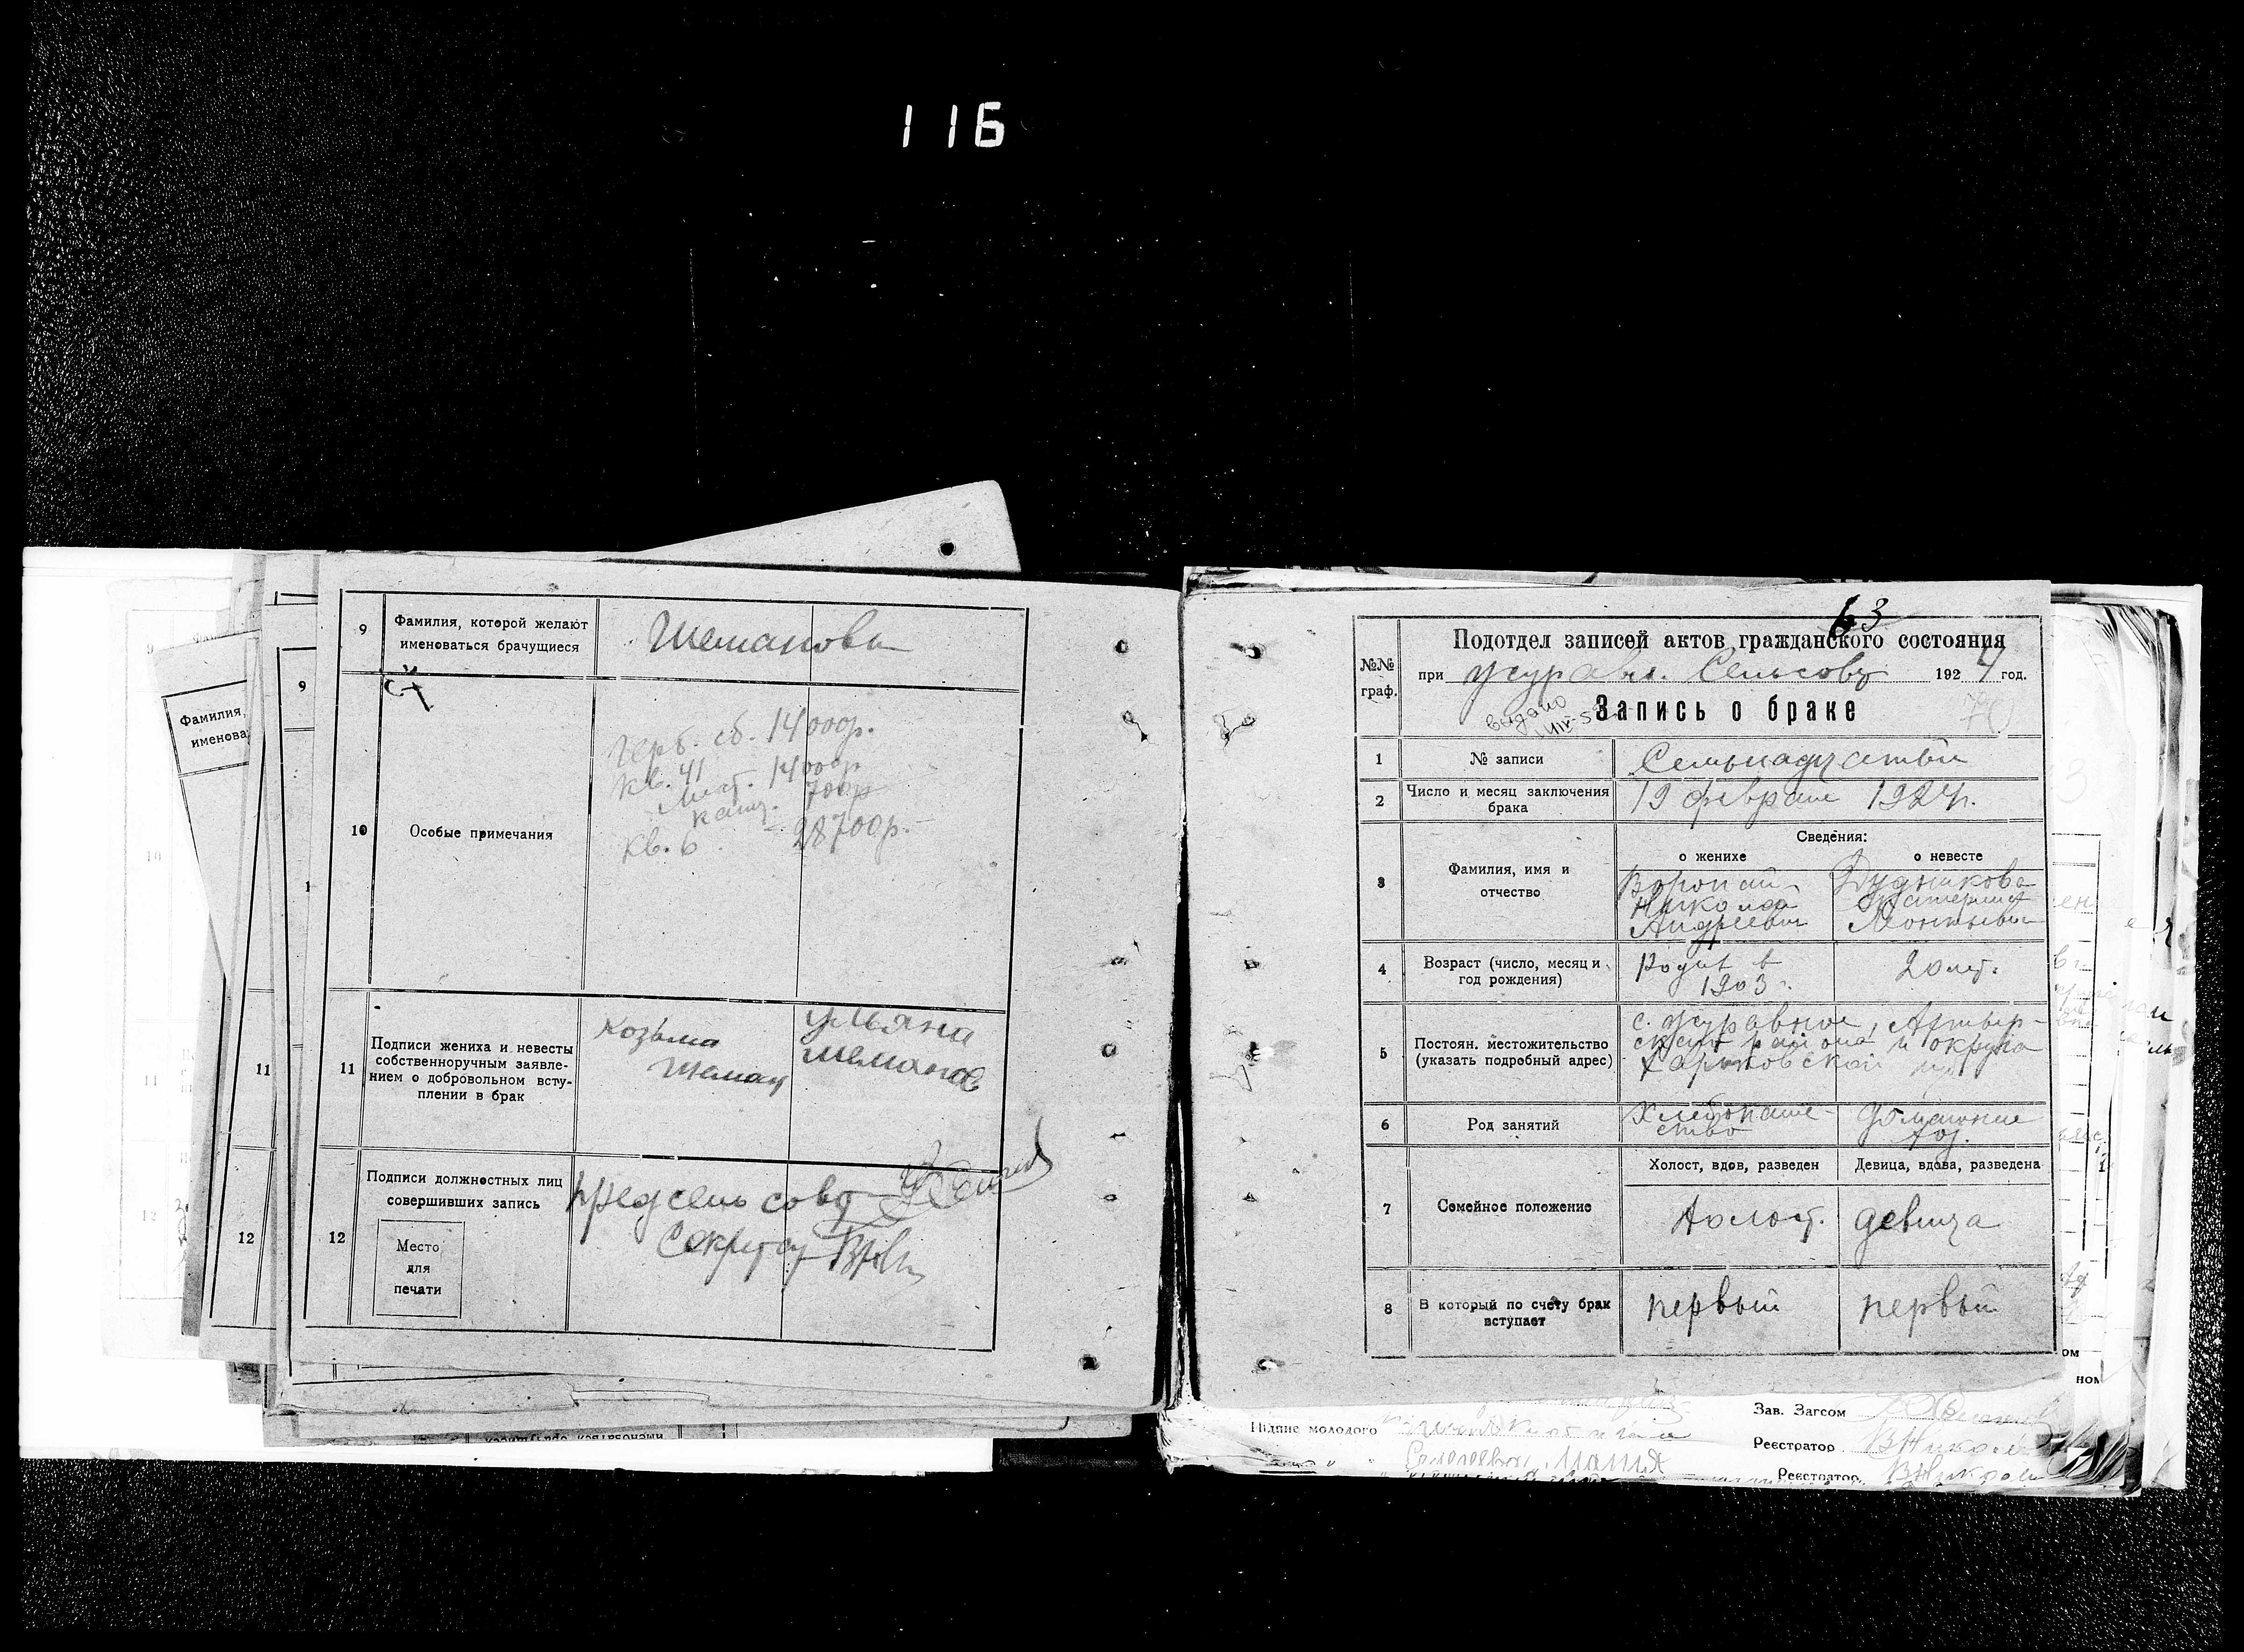 116
9
Фамилия, которой желают
именоваться брачущиеся
Шемановы
10
Особые примечания
Герб. сб. 14000р.
кв. 41
Мест. 14000р
канц. 700р
кв. 6 - 28700р.-
11
Подписи жениха и невесты
собственноручным заявле-
нием о добровольном всту-
плении в брак
Козьма
Шеман
Ульяна
Шеманов
12
Подписи должностных лиц
совершивших запись
Место
для
печати
предсельсовт
Секрет
9
Фамилия,
11
12
63
№№
граф.
Подотдел записей актов гражданского состояния
при Журавл. Сельсовт 1924 год.
выдано
Запись о браке
1
№ записи
Семьнадцятый
2
Число и месяц заключения
брака
19 февраля 1924р.
3
Фамилия, имя и
отчество
Сведения:
о женихе
о невесте
Воропай
Никола
Андреевич
Дудникова
Екатерина
Леонтьевна
4
Возраст (число, месяц и
год рождения)
Родил в
1903 г.
20 лет.
5
Постоян. местожительство
(указать подробный адрес)
с. Журавное, Ахтыр-
скаго района и округа
Харьковской
6
Род занятий
Хлебопаше-
ство
Домашнее
хоз.
7
Семейное положение
Холост, вдов, разведен
Девица, вдова, разведена
Холост.
девица
8
В который по счету брак
вступает
первый
первый
Підпис молодого
Зав. Загсом
Реєстратор
Реєстратор